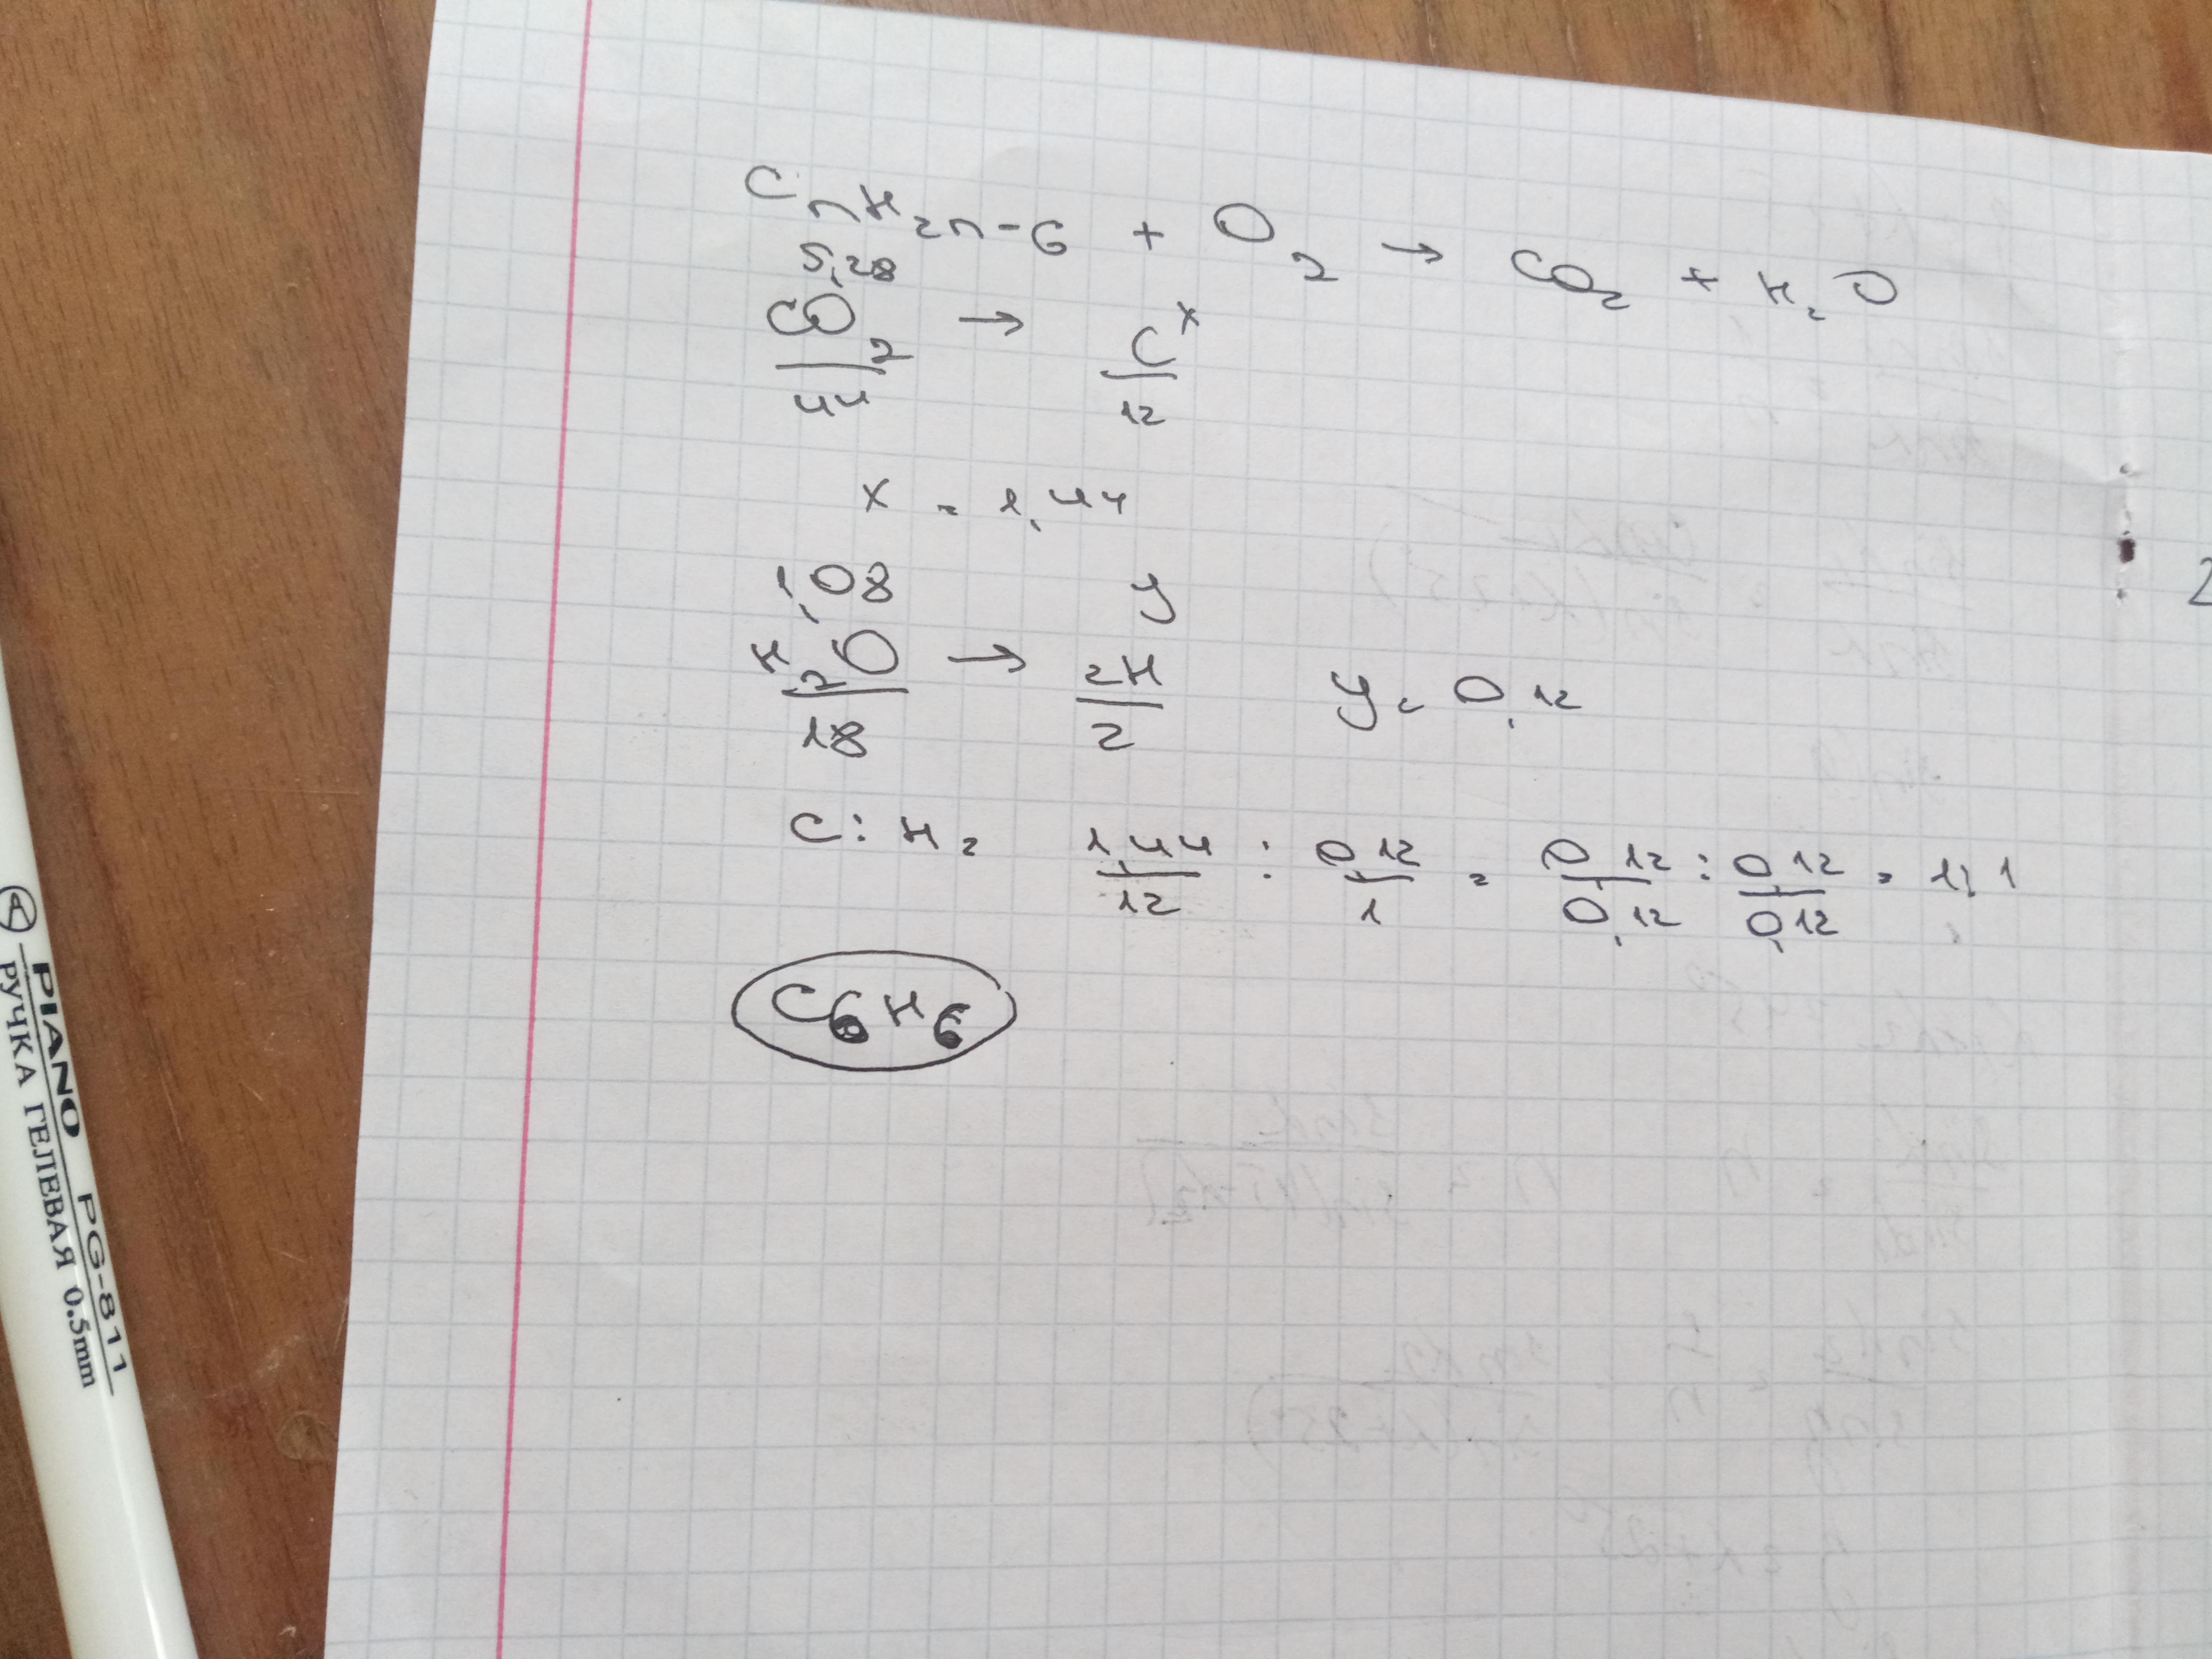 CnH2n-6 + O2 → CO2 + H2O
5,28 x
CO2 → C
44 12
x = 1,44
1,08 y
H2O → 2H y = 0,12
18 2
C : H = 1,44/12 : 0,12/1 = 0,12/0,12 : 0,12/0,12 = 1:1
C6H6
2
PIANO PG-811
РУЧКА ГЕЛЕВАЯ 0.5mm